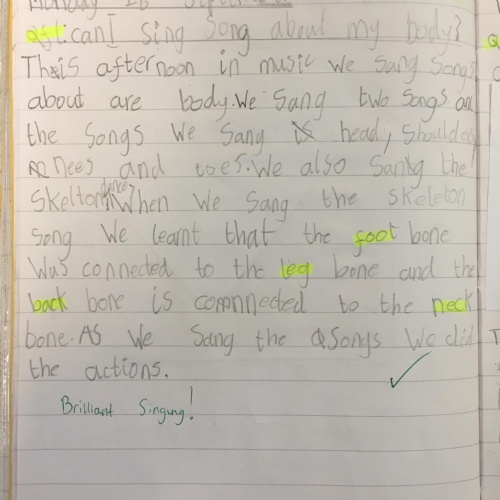 Monday 26 September
can I sing song about my body?
This afternoon in music we sang songs
about are body. We sang two songs and
the songs we sang is head, shoulders
knees and toes. We also sang the
Skelton dance. When we sang the skeleton
song we learnt that the foot bone
was connected to the leg bone and the
back bone is connected to the neck
bone. As we sang the songs we did
the actions.
Brilliant Singing!